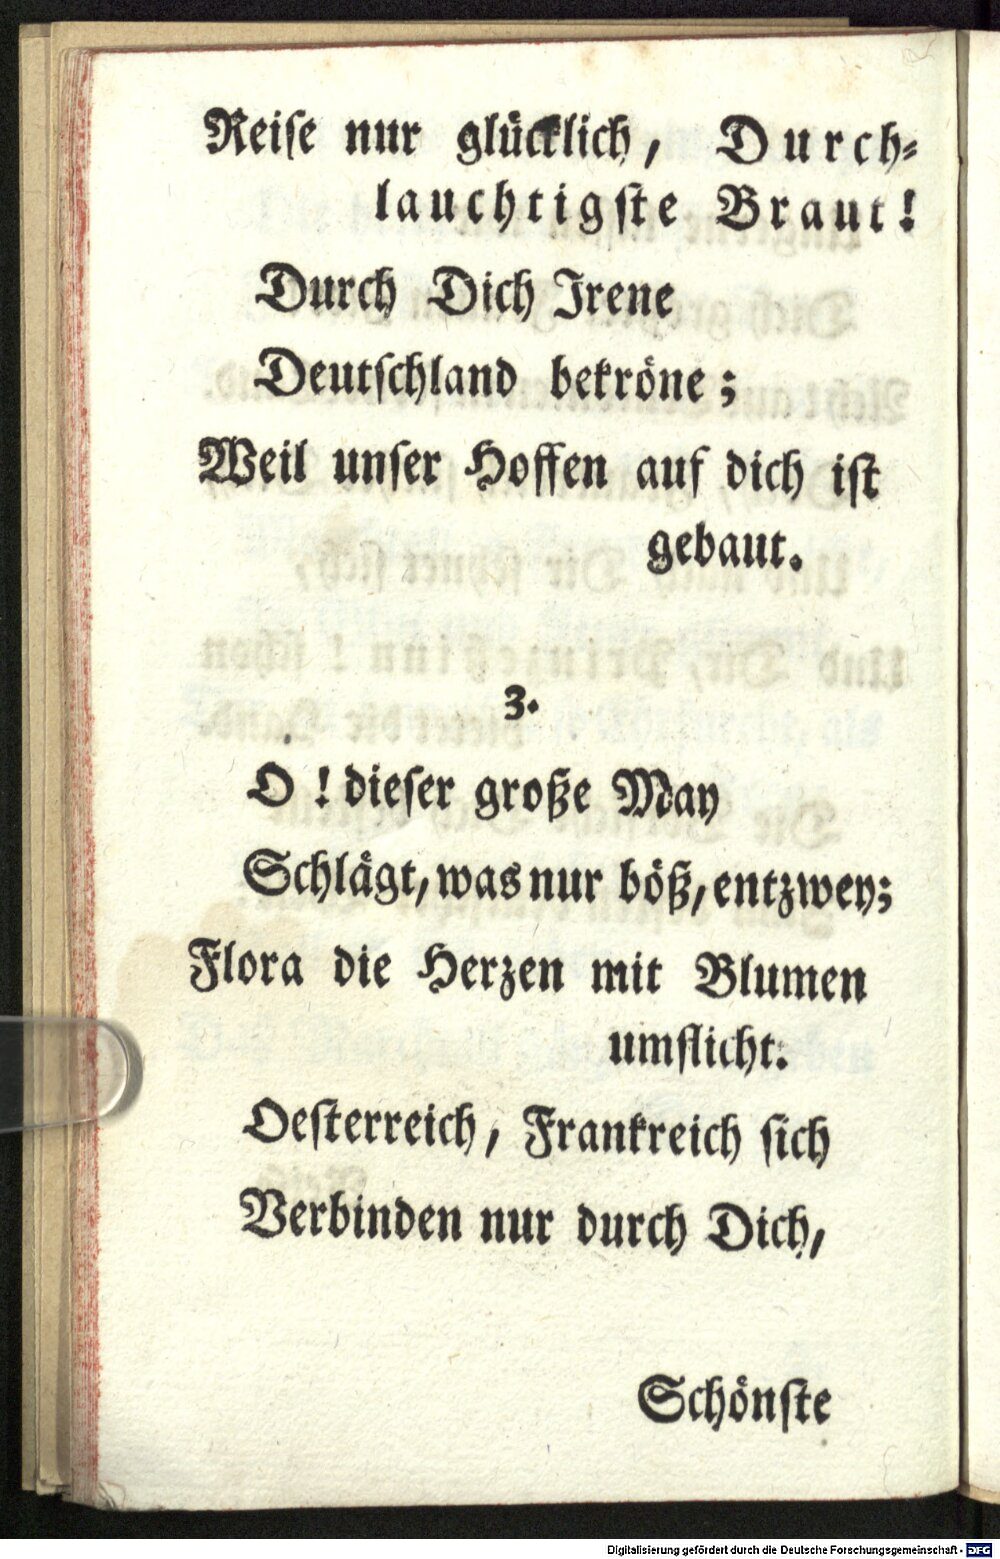 Reiſe nur glücklich, Durch⸗
lauchtigſte Braut!
Durch Dich Irene
Deutſchland bekröne;
Weil unſer Hoffen auf dich iſt
gebaut.
3.
O! dieſer große May
Schlägt, was nur böß, entzwey;
Flora die Herzen mit Blumen
umflicht.
Oeſterreich, Frankreich ſich
Verbinden nur durch Dich,
Schönſte
Digitalisierung gefördert durch die Deutsche Forschungsgemeinschaft - DFG